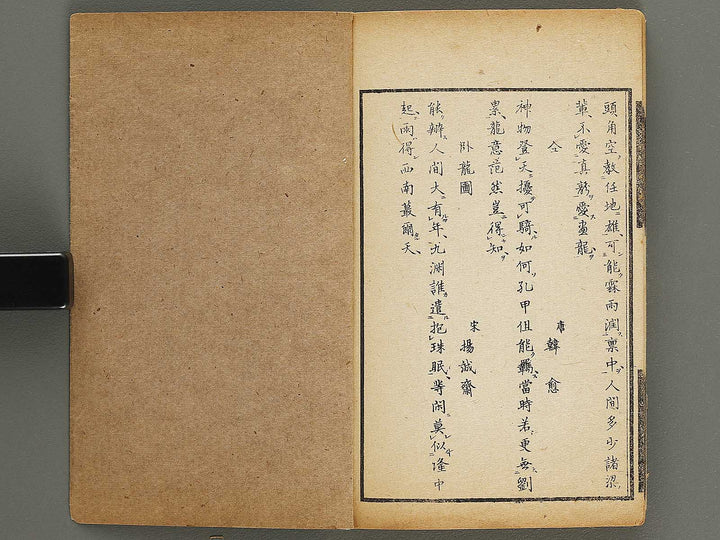 頭角空教任地雄可能霖雨潤禀中人間多少諸梁
輩不愛真龍愛畫龍
仝 唐 韓愈
神物登天擾可騎如何孔甲但能羈當時若更無劉
累龍意茫然豈得知
臥龍圖 宋 揚誠齋
能辨人間大有年九淵誰遣抱珠眠等閑莫似隆中
起雨得西南蕞爾天